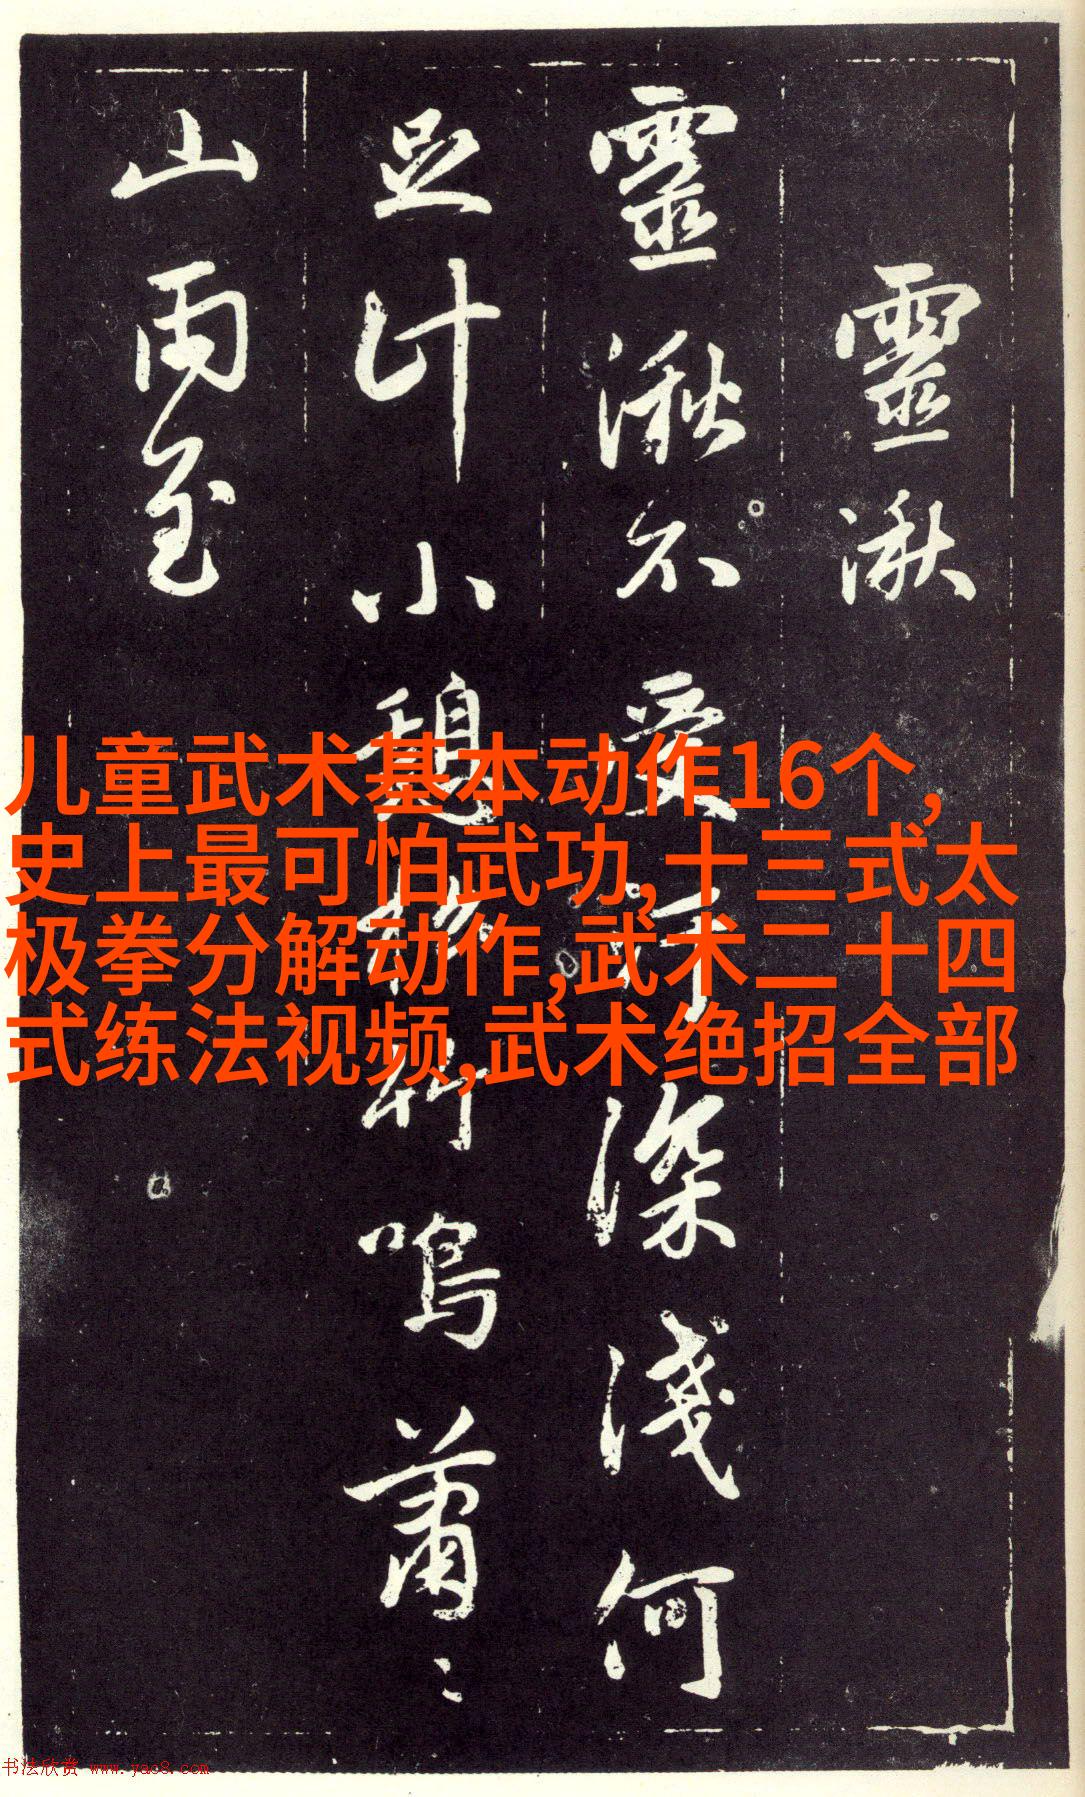 靈湫
靈湫不受汙深淺何
足計小憩松竹鳴蕭〻
山雨至
儿童武术基本动作16个,
史上最可怕武功,十三式太
极拳分解动作,武术二十四
式练法视频,武术绝招全部
书法欣赏 www.yac8.com